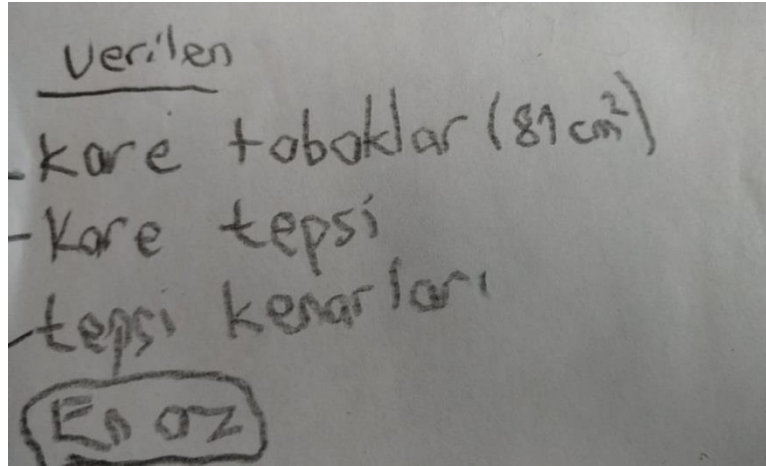 Verilen
-kare taboklar (81 cm²)
-kare tepsi
-tepsi kenarları
En az